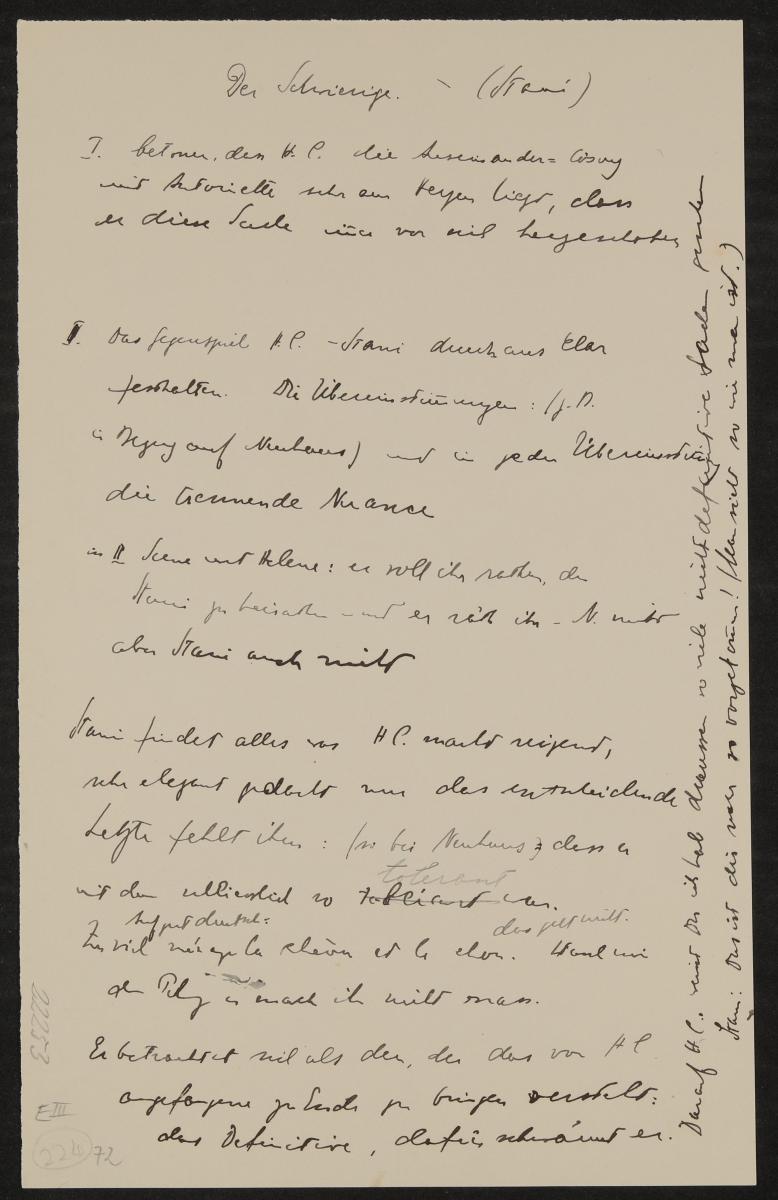 Der Schwierige. – (Stani)
I. betonen, dass H. C. die Auseinander= lösung
mit Antoinette sehr am Herzen liegt, dass
er diese Sache immer vor sich hergeschoben
II. Das Gegenspiel H. C. – Stani durchaus klar
festhalten. Die Übereinstimmungen: (z. B.
in Bezug auf Neuhaus) und in jeder Übereinstimmung
die trennende Nuance
in II Scene mit Helene: er soll ihr rathen, den
Stani zu heirathen – und er räth ihr – N. nicht
aber Stani auch nicht
Stani findet alles was H C. macht reizend,
sehr elegant gedacht nur das entscheidende
Letzte fehlt ihm: (so bei Neuhaus) dass er
tolerant
mit dem schliesslich so war.
Auf gut deutsch:
das gilt nicht.
Zu viel ménager la chèvre et le chou.
den Pelz u mach ihn nicht nass.
Er betrachtet sich als den, der das von H C.
angefangene zu Ende zu bringen versteht:
das Definitive, dafür schwärmt er.
Darauf H. C.: mir Du ich hab draussen so viele nicht definitive Sachen gesehen
Stani: Das ist dir nur so vorgekommen! (Man sieht so wie man ist.)
22253
E III
224
72